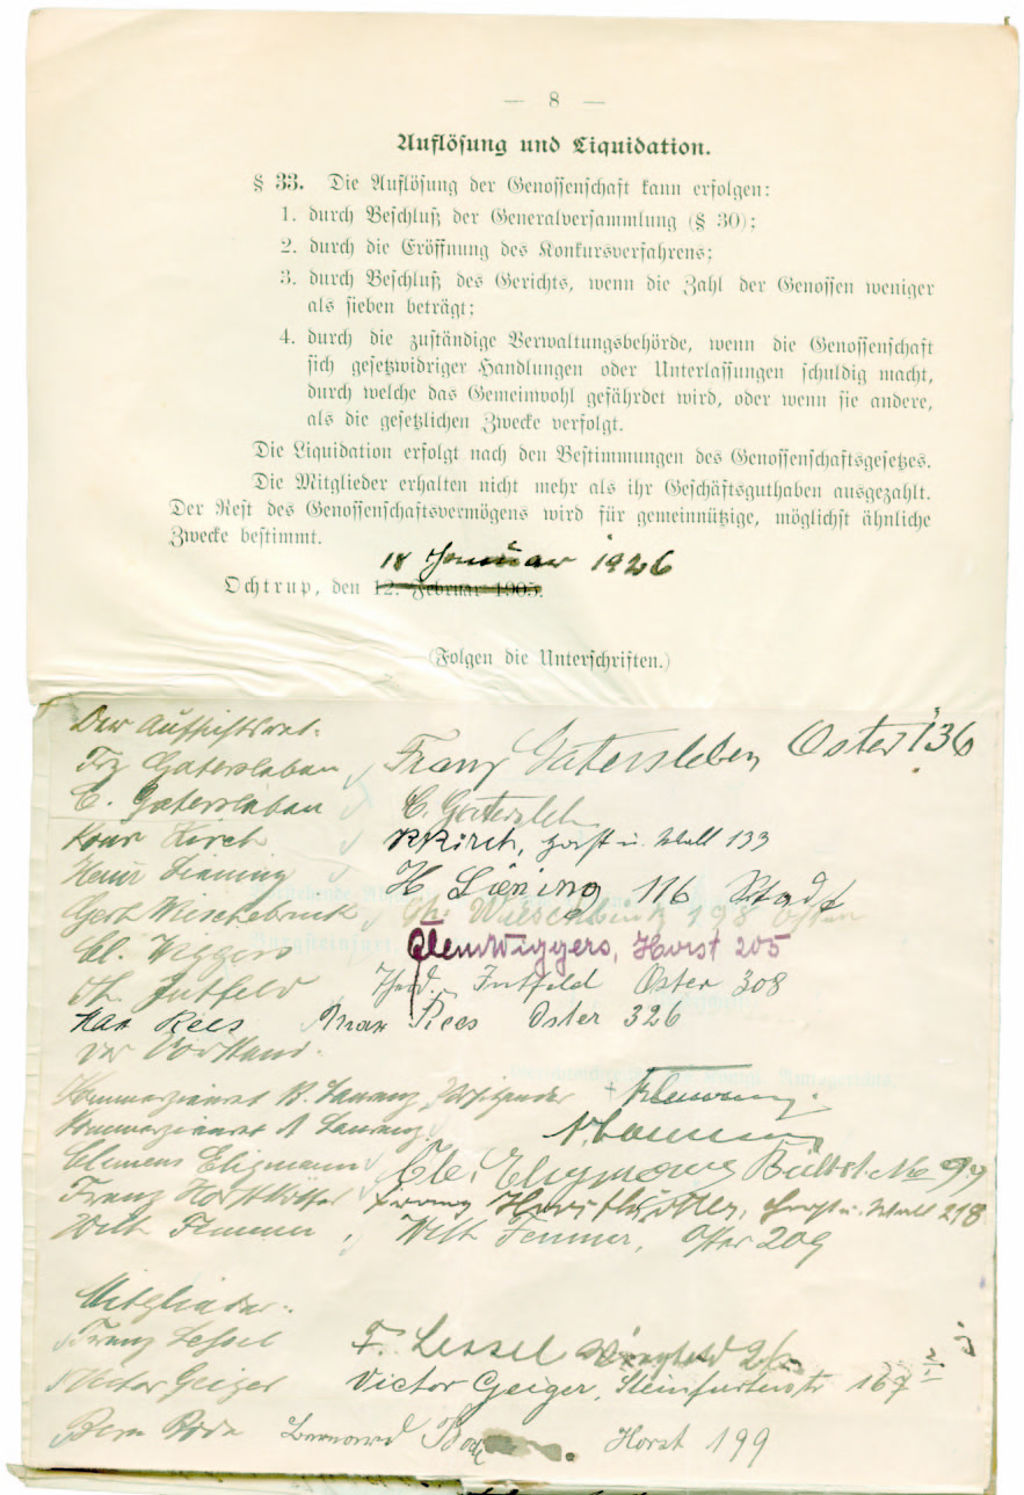 — 8 —
Auflösung und Liquidation.
§ 33. Die Auflösung der Genossenschaft kann erfolgen:
1. durch Beschluß der Generalversammlung (§ 30);
2. durch die Eröffnung des Konkursverfahrens;
3. durch Beschluß des Gerichts, wenn die Zahl der Genossen weniger
als sieben beträgt;
4. durch die zuständige Verwaltungsbehörde, wenn die Genossenschaft
sich gesetzwidriger Handlungen oder Unterlassungen schuldig macht,
durch welche das Gemeinwohl gefährdet wird, oder wenn sie andere,
als die gesetzlichen Zwecke verfolgt.
Die Liquidation erfolgt nach den Bestimmungen des Genossenschaftsgesetzes.
Die Mitglieder erhalten nicht mehr als ihr Geschäftsguthaben ausgezahlt.
Der Rest des Genossenschaftsvermögens wird für gemeinnützige, möglichst ähnliche
Zwecke bestimmt.
18 Januar 1926
Ochtrup, den 12. Februar 1905.
(Folgen die Unterschriften.)
Der Aufsichtsrat.
Frz Gatersleben Franz Gatersleben Oster 136
C. Gatersleben C. Gatersleb
Konr Kirch Kirch, Horst u. Wall 133
Heinr Liening H Liening 116 Stadt
Gerh Wieschebrink Gh. Wieschebrink 198 Oster
Cl. Wiggers Clem Wiggers, Horst 205
Th. Jutfeld Theod. Jutfeld Oster 308
Max Rees Max Rees Oster 326
Der Vorstand.
Kommerzienrat B. Laurenz, Vorsitzender
Kommerzienrat A Laurenz. A. Laurenz
Clemens Eligmann Cle. Eligmann Bültst. No 99
Franz Horstkötter Franz Horstkötter, Horst u. Wall 218
Wilh Temmer, Wilh Temmer, Oster 209
Mitglieder:
Franz Lessel F. Lessel 26
Victor Geiger Victor Geiger, Steinfurterstr 167
Bern Bode Bernard Bode Horst 199